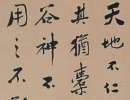 天地不仁
其猶橐
谷神不
用之不